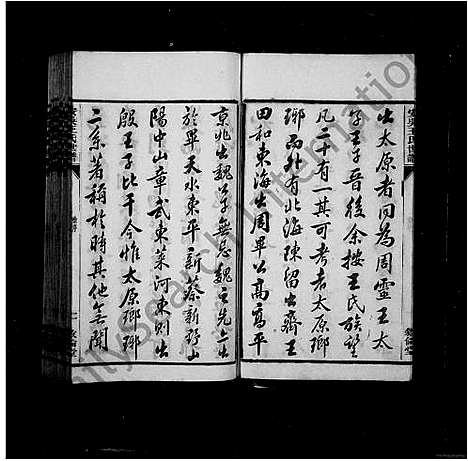 出太原者同為周靈王太
子王子晉後余按王氏族望
凡二十有一其可考者太原瑯
瑯而外有北海陳留出齊王
田和東海出周畢公高高平
京兆出魏
天水東平新蔡新野山
陽中山章武東萊河東則出
殷王子比干今惟太原瑯瑯
二系著稱於時其他無聞
FamilySearch International